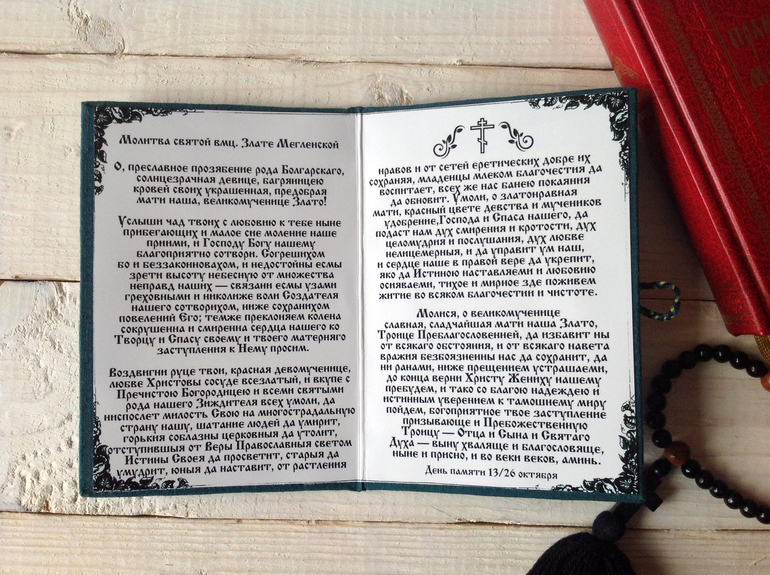 Молитва святой вмц. Злате Мегленской
О, преславное прозябение рода Болгарскаго,
солнцезрачная девице, багряницею
кровей своих украшенная, предобрая
мати наша, великомученице Злато!
Услыши чад твоих с любовию к тебе ныне
прибегающих и малое сие моление наше
приими, и Господу Богу нашему
благоприятно сотвори. Согрешихом
бо и беззаконновахом, и недостойны есмы
зрети высоту небесную от множества
неправд наших — связани есмы узами
греховными и николиже воли Создателя
нашего сотворихом, ниже сохранихом
повелений Его; темже преклоняем колена
сокрушенна и смиренна сердца нашего ко
Творцу и Спасу своему и твоего матерняго
заступления к Нему просим.
Воздвигни руце твои, красная девомученице,
любве Христовы сосуде всезлатый, и вкупе с
Пречистою Богородицею и всеми святыми
рода нашего Зиждителя всех умоли, да
ниспослет милость Свою на многострадальную
страну нашу, шатание людей да умирит,
горькия соблазны церковныя да утолит,
отступившия от Веры Православныя светом
Истины Своея да просветит, старыя да
умудрит, юныя да наставит, от растления
нравов и от сетей еретических добре их
сохраняя, младенцы млеком благочестия да
воспитает, всех же нас банею покаяния
да обновит. Умоли, о златонравная
мати, красный цвете девства и мучеников
удобрение,Господа и Спаса нашего, да
подаст нам дух смирения и кротости, дух
целомудрия и послушания, дух любве
нелицемерныя, и да управит ум наш,
и сердце наше в правой вере да укрепит,
яко да Истиною наставляеми и любовию
осияваеми, тихое и мирное зде поживем
житие во всяком благочестии и чистоте.
Молися, о великомученице
славная, сладчайшая мати наша Злато,
Троице Преблагословенней, да избавит ны
от всякаго обстояния, и от всякаго навета
вражия безбоязненны нас да сохранит, да
ни ранами, ниже прещением устрашаеми,
до конца верни Христу Жениху нашему
пребудем, и тако со благою надеждею и
истинным уверением к тамошнему миру
пойдем, богоприятное твое заступление
призывающе и Пребожественную
Троицу — Отца и Сына и Святаго
Духа — выну хваляще и благословяще,
ныне и присно, и во веки веков, аминь.
День памяти 13/26 октября